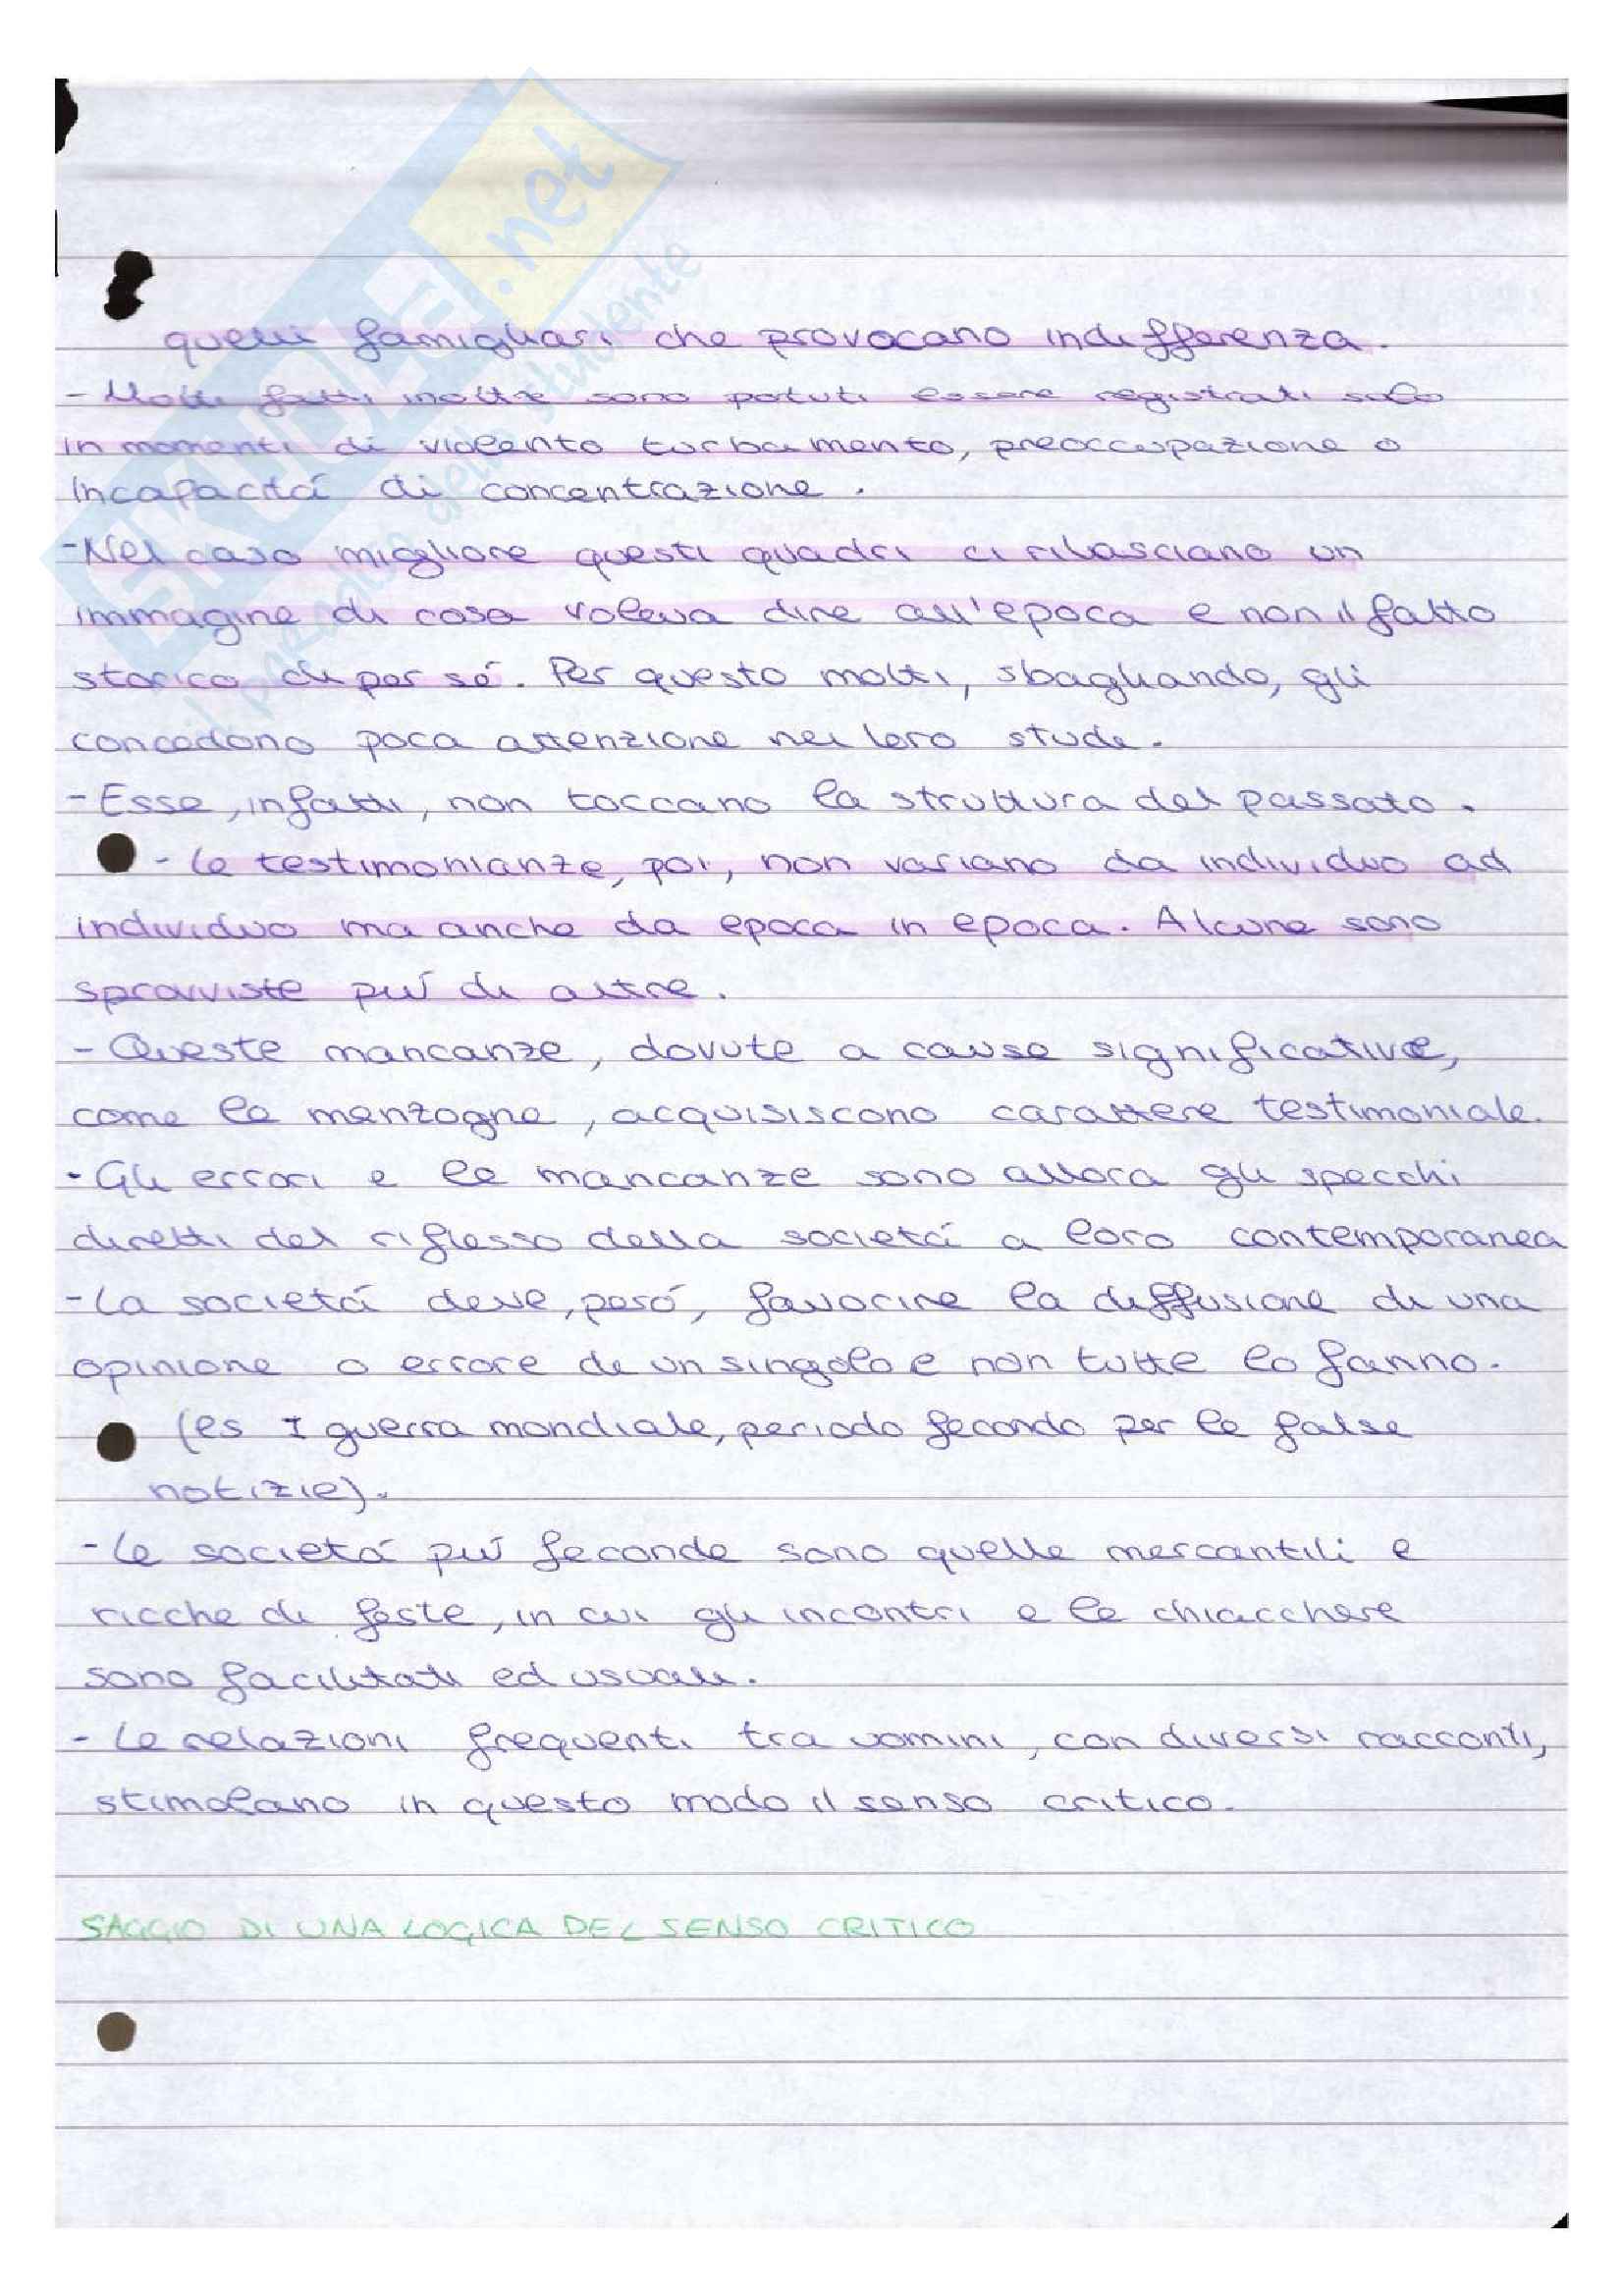 SKUOLA.net
il paradiso dello studente
quelli famigliari che provocano indifferenza.
- Molti fatti inoltre sono potuti essere registrati solo
in momenti di violento turbamento, preoccupazione o
incapacitá di concentrazione.
-Nel caso migliore questi quadri ci rilasciano un
immagine di cosa voleva dire all'epoca e non il fatto
storico di per sé. Per questo molti, sbagliando, gli
concedono poca attenzione nei loro studi.
- Esse, infatti, non toccano la struttura del passato.
- Le testimonianze, poi, non variano da individuo ad
individuo ma anche da epoca in epoca. Alcune sono
sprovviste piú di altre.
- Queste mancanze, dovute a cause significative,
come le menzogne, acquisiscono carattere testimoniale.
- Gli errori e le mancanze sono allora gli specchi
diretti del riflesso della societá a loro contemporanea
- La societá deve, peró, favorire la diffusione di una
opinione o errore di un singolo e non tutte lo fanno.
(es I guerra mondiale, periodo fecondo per le false
notizie).
- Le societá piú feconde sono quelle mercantili e
ricche di feste, in cui gli incontri e le chiacchere
sono facilitati ed usuali.
- Le relazioni frequenti tra uomini, con diversi racconti,
stimolano in questo modo il senso critico.
SAGGIO DI UNA LOGICA DEL SENSO CRITICO